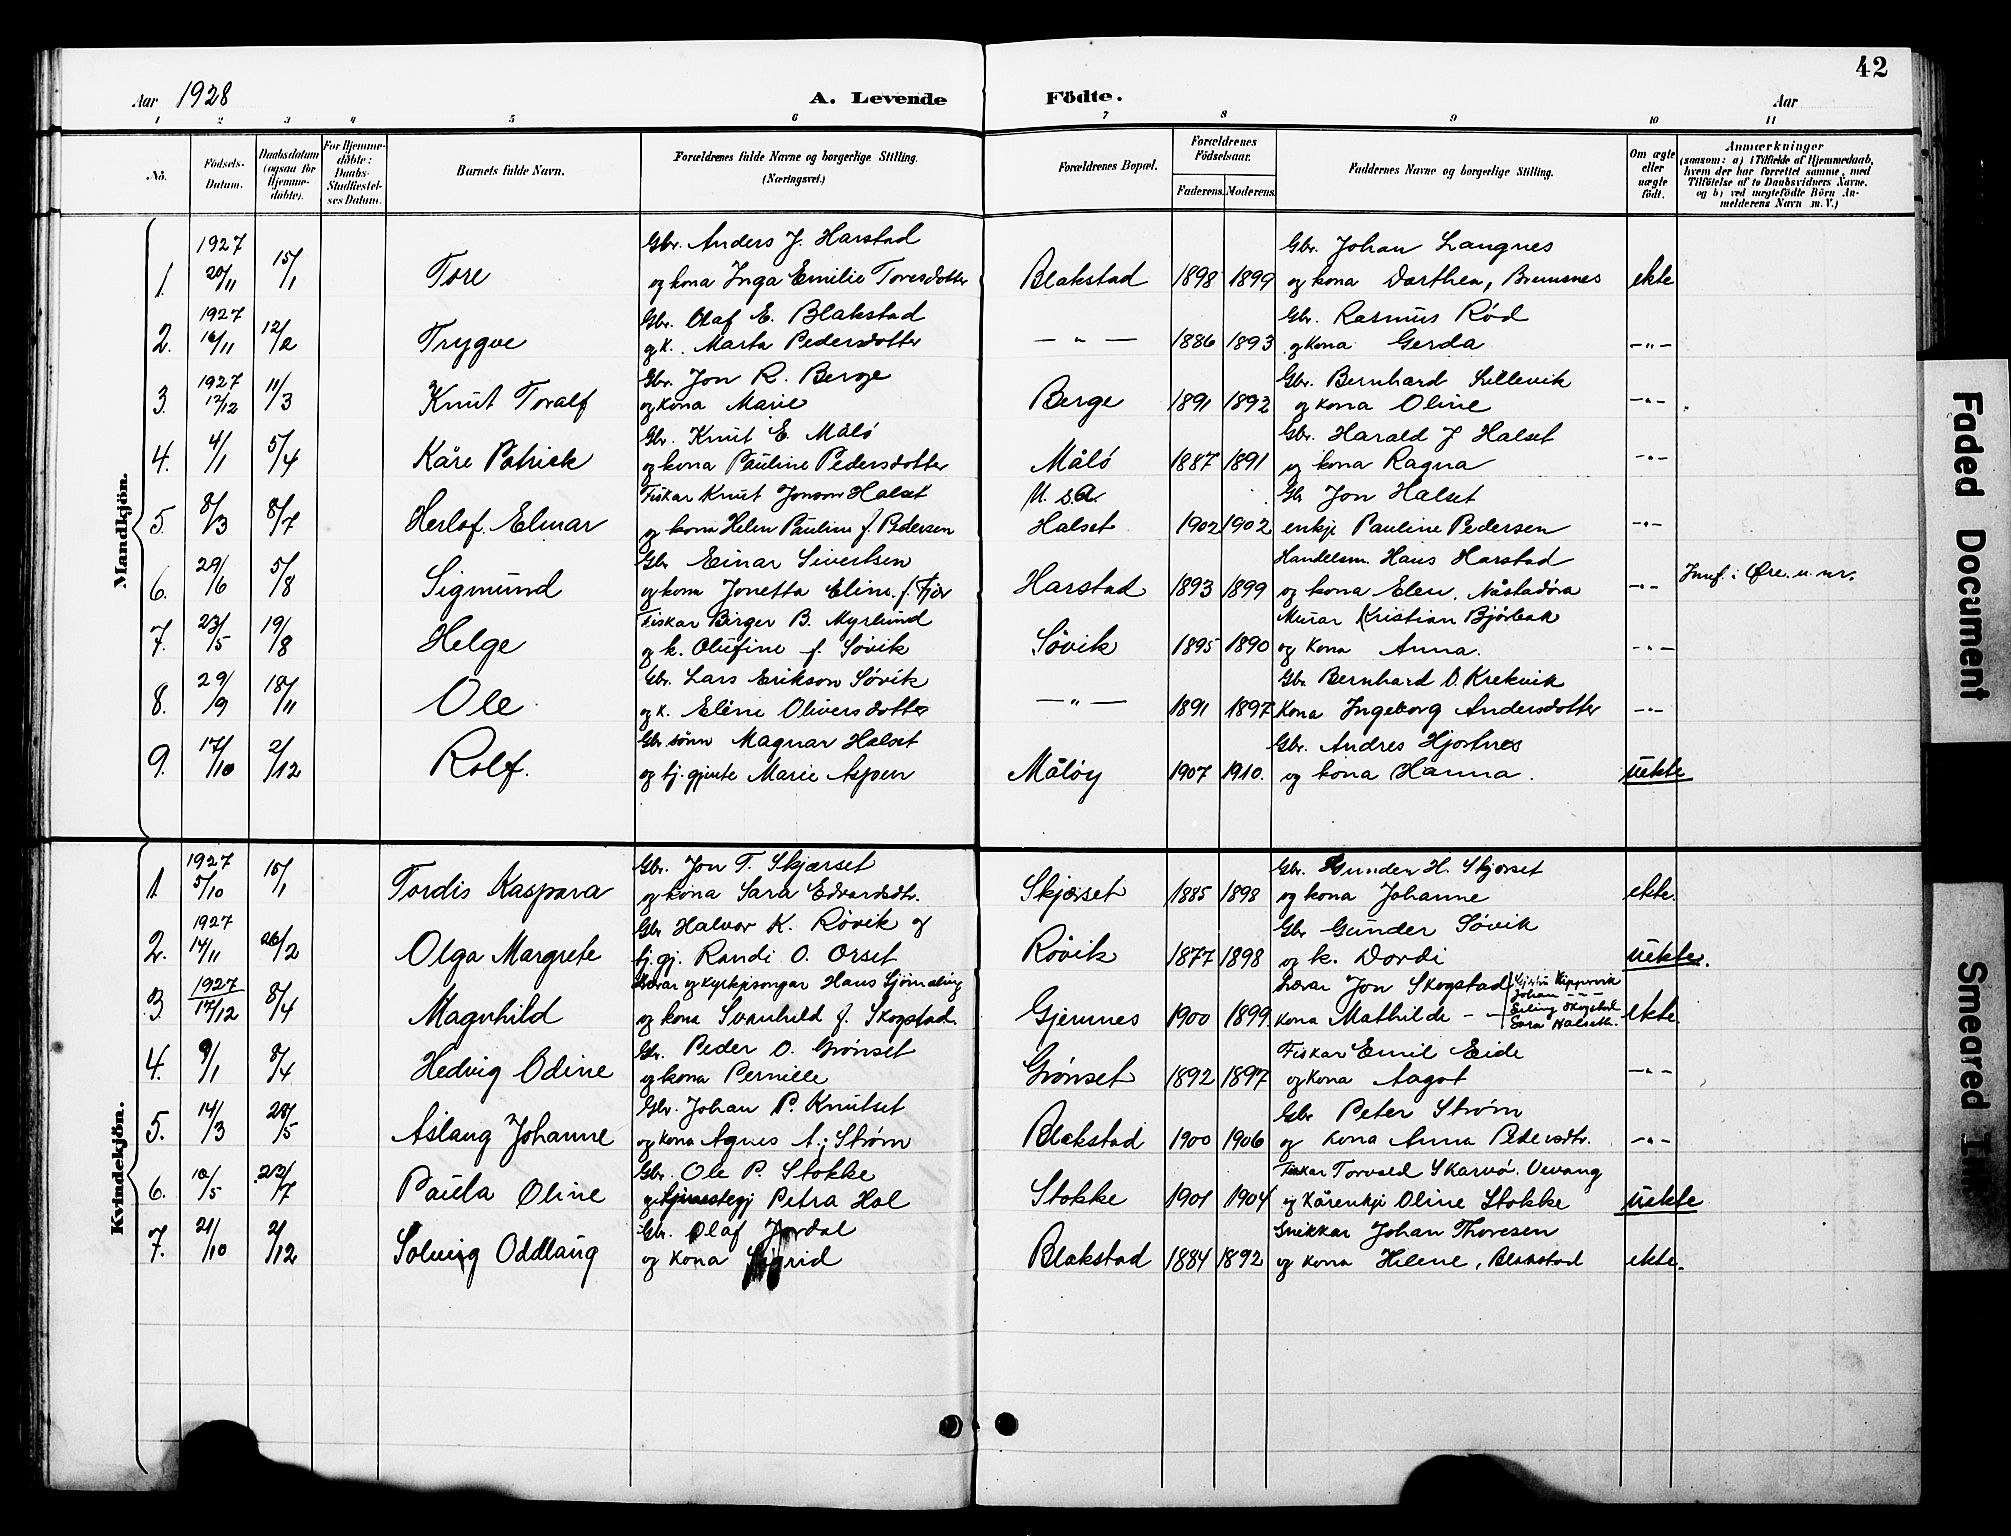 42
Aar 1928 A. Levende Födte. Aar
1 2 3 4 5 6 7 8 9 10 11
No. Födsels-Datum. Daabsdatum (ogsaa for Hjemmedöbte). For Hjemmedöbte: Daabs-Stadfæstelses Datum. Barnets fulde Navn. Forældrenes fulde Navne og borgerlige Stilling. (Næringsvei.) Forældrenes Bopæl. Forældrenes Födselsaar. Faderens. Moderens. Faddernes Navne og borgerlige Stilling. Om ægte eller uægte födt. Anmærkninger (saasom: a) i Tilfælde af Hjemmedaab, hvem der har forrettet samme, med Tilföielse af to Daabsvidners Navne, og b) ved uægtefödte Börn Anmelderens Navn m. V.)
Mandkjön.
1927 Gbr. Anders J. Harstad Gbr. Johan Langnes
1. 20/11 15/1 Tore og kona Inga Emilie Toresdotter Blakstad 1898 1899 og kona Dorthea, Bremsnes ekte
1927 Gbr. Olaf E. Blakstad Gbr. Rasmus Rød
2. 16/11 12/2 Trygve og k. Marta Pedersdotter — " — 1886 1893 og kona Gerda — " —
1927 Gbr. Jon R. Berge Gbr. Bernhard Lillevik
3. 12/12 11/3 Knut Toralf og kona Marie Berge 1891 1892 og kona Oline — " —
Gbr. Knut E. Måló Gbr. Harald J Halset
4. 4/1 5/4 Kåre Patrick og kona Pauline Pedersdotter Måló 1887 1891 og kona Ragna — " —
Fiskar Knut Jonson Halset U.S.A. Gbr Jon Halset
5. 8/3 8/7 Herlof Elmar og kona Helen Pauline f. Pedersen Halset 1902 1902 enkje Pauline Pedersen — " —
Gbr Einar Sivertsen Handelsm. Hans Harstad
6. 29/6 5/8 Sigmund og kona Jonetta Eline f. Harstad 1893 1899 og kona Elen, — " — Innf. i Øre u. nr.
Fiskar Birger B. Myrlund Murar Kristian Bjørbak
7. 23/5 19/8 Helge og k. Olufine f. Søvik Søvik 1895 1890 og kona Anna. — " —
Gbr. Lars Erikson Søvik Gbr. Bernhard O. Krekvik
8. 29/9 18/11 Ole og k. Eline Oliversdotter — " — 1891 1897 kona Ingeborg Andersdotter — " —
Gbr sønn Magnar Halset Gbr. Andres Hjortnes
9. 17/10 2/12 Rolf. og tj. gjente Marie Aspen Måløy 1907 1910. og kona Hanna. uekte
Kvindekjön.
1927 Gbr. Jon T. Skjærset Gbr. Gunder H. Skjørset
1 5/10 15/1 Tordis Kaspara og kona Sara Edvardsdtr. Skjærset 1885 1898 og kona Johanne ekte.
1927 Gbr Halvor K. Røvik og Gbr Gunder Søvik
2. 14/11 26/2 Olga Margrete tj. gj. Randi O. Orset Røvik 1877 1898 og k. Dordi uekte.
1927 Lærar og kyrkjesongar Hans Lærar Jon Skogstad Johan — — —
3 17/12 8/4 Magnhild og kona Svanhild f. Skogstad. Gjemnes 1900 1899 kona Mathilde — Erling Skogstad Sara Halseth. ekte.
Gbr. Peder O. Grønset Fiskar Emil Eide
4. 9/1 8/4 Hedvig Odine og kona Pernille Grønset 1892 1897 og kona Aagot — " —
Gbr. Johan P. Knutset Gbr Peter Strøm
5. 14/3 28/5 Aslaug Johanne og kona Agnes A. f Strøm Blakstad 1900 1906 og kona Anna Pedersdtr. — " —
Gbr. Ole P. Stokke Fiskar Torvald Skarvø. Vevang
6. 10/5 22/7 Paula Oline og Petra Hol Stokke 1901 1904 og Kårenkje Oline Stokke uekte
Gbr. Olaf Jordal Snikkar Johan Thoresen
7. 21/10 2/12 Solveig Oddlaug og kona Sigrid Blakstad 1884 1892 og kona Helene, Blakstad ekte.
Faded Document
Smeared Ink